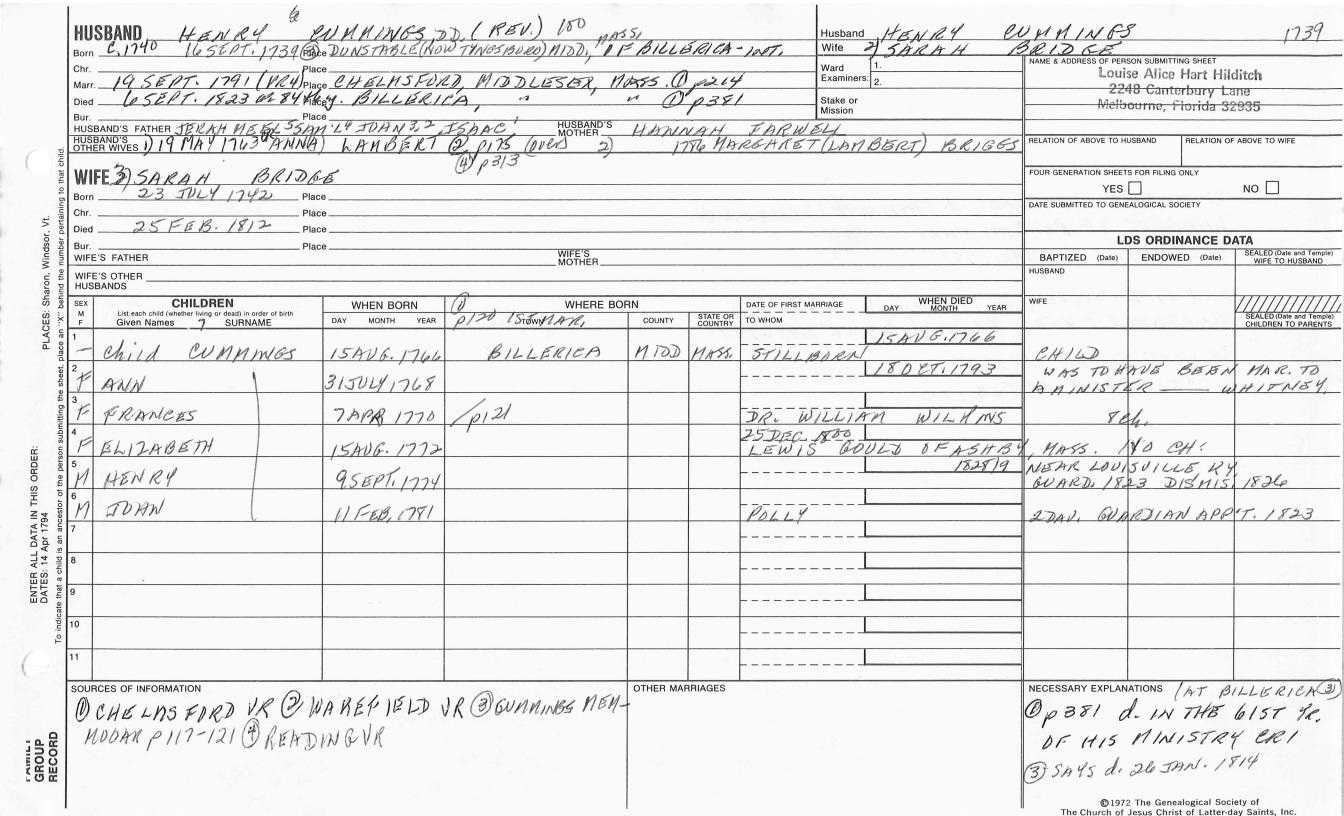 HUSBAND HENRY CUMMINGS, DD. (REV.) 100
Born C. 1740 16 SEPT. 1739 ③ Place DUNSTABLE (NOW TYNGSBORO) MIDD, MASS. OF BILLERICA - INT.
Chr. Place
Marr. 19 SEPT. 1791 Place CHELMSFORD, MIDDLESEX, MASS. ① p214
Died 6 SEPT. 1823 84 Place BILLERICA, " " ① p381
Bur. Place
HUSBAND'S FATHER JERAHMEEL⁵ SAM'L⁴ JOHN³,² ISAAC¹ HUSBAND'S MOTHER HANNAH FARWELL
HUSBAND'S OTHER WIVES 1) 19 MAY 1763 ANNA) LAMBERT ② p175 (over) 2) 1786 MARGARET (LAMBERT) BRIGGS
④ p313
WIFE 3) SARAH BRIDGE
Born 23 JULY 1742 Place
Chr. Place
Died 25 FEB. 1812 Place
Bur. Place
WIFE'S FATHER WIFE'S MOTHER
WIFE'S OTHER HUSBANDS
Husband HENRY CUMMINGS 1739
Wife 2) SARAH BRIDGE
Ward Examiners: 1.
2.
Stake or Mission
NAME & ADDRESS OF PERSON SUBMITTING SHEET
Louise Alice Hart Hilditch
2248 Canterbury Lane
Melbourne, Florida 32935
RELATION OF ABOVE TO HUSBAND RELATION OF ABOVE TO WIFE
FOUR GENERATION SHEETS FOR FILING ONLY
YES NO
DATE SUBMITTED TO GENEALOGICAL SOCIETY
LDS ORDINANCE DATA
BAPTIZED (Date) ENDOWED (Date) SEALED (Date and Temple) WIFE TO HUSBAND
HUSBAND
WIFE
SEALED (Date and Temple) CHILDREN TO PARENTS
SEX M F CHILDREN WHEN BORN WHERE BORN DATE OF FIRST MARRIAGE WHEN DIED
List each child (whether living or dead) in order of birth
Given Names 7 SURNAME DAY MONTH YEAR ① p120 1ST MAR, TOWN COUNTY STATE OR COUNTRY TO WHOM DAY MONTH YEAR
1 – Child CUMMINGS 15 AUG. 1766 BILLERICA MIDD MASS. STILLBORN 15 AUG. 1766 CHILD
2 F ANN 31 JULY 1768 18 OCT. 1793 WAS TO HAVE BEEN MAR. TO
A MINISTER —— WHITNEY.
3 F FRANCES 7 APR 1770 / p121 DR. WILLIAM WILKINS 8 ch.
4 F ELIZABETH 15 AUG. 1772 25 DEC 1800
LEWIS GOULD OF ASHBY, MASS. NO CH.
5 M HENRY 9 SEPT. 1774 1828/9 NEAR LOUISVILLE KY.
GUARD. 1823 DISMIS. 1826
6 M JOHN 11 FEB, 1781 POLLY 2 DAU. GUARDIAN APP'T. 1823
7
8
9
10
11
SOURCES OF INFORMATION
① CHELMSFORD VR ② WAKEFIELD VR ③ CUMMINGS MEM-
p117-121 ④ READING VR
OTHER MARRIAGES
NECESSARY EXPLANATIONS (AT BILLERICA ③)
① p381 d. IN THE 61ST YR.
OF HIS MINISTRY CR1
③ SAYS d. 26 JAN. 1814
©1972 The Genealogical Society of
The Church of Jesus Christ of Latter-day Saints, Inc.
ENTER ALL DATA IN THIS ORDER:
DATES: 14 Apr 1794 PLACES: Sharon, Windsor, Vt.
To indicate that a child is an ancestor of the person submitting the sheet, place an "X" behind the number pertaining to that child.
FAMILY GROUP RECORD